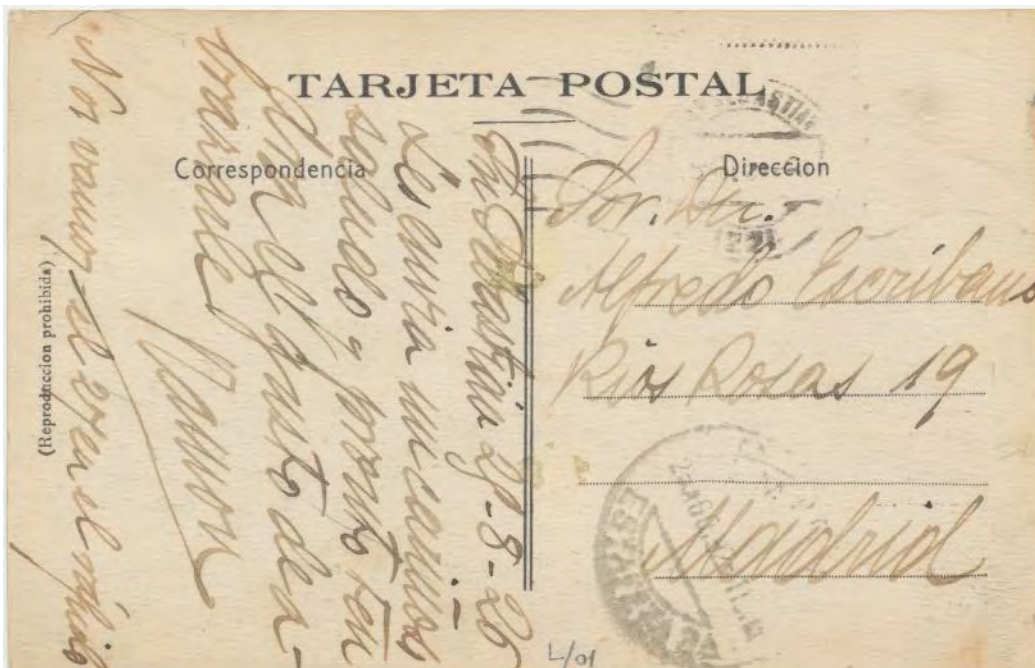 TARJETA POSTAL
Correspondencia
Direccion
(Reproduccion prohibida)
Sn Sebastian 27-8-26
Le envia un cariñoso
saludo, y pronto ten
drá el gusto de a-
brazarle
Ramon
Nos vamos el 29 en el rápido
Sor. Dn.
Alfredo Escribano
Rios Rosas 19
Madrid
L/01